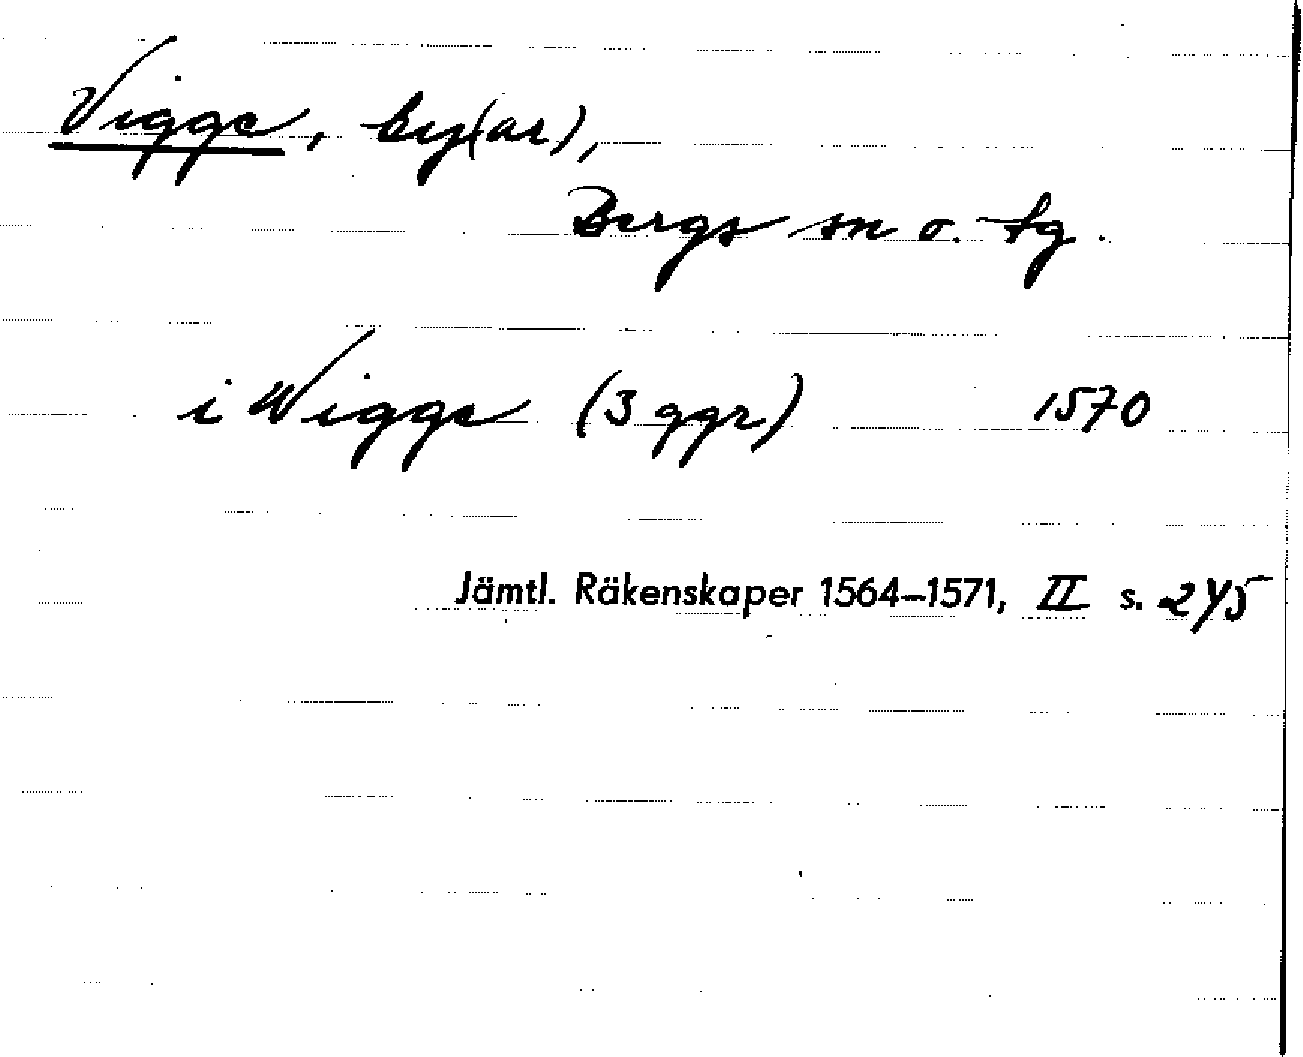 Vigge, by(ar),
Bergs sn o. tg.
i Wigge (3 ggr.) 1570
Jämtl. Räkenskaper 1564–1571, II s. 245